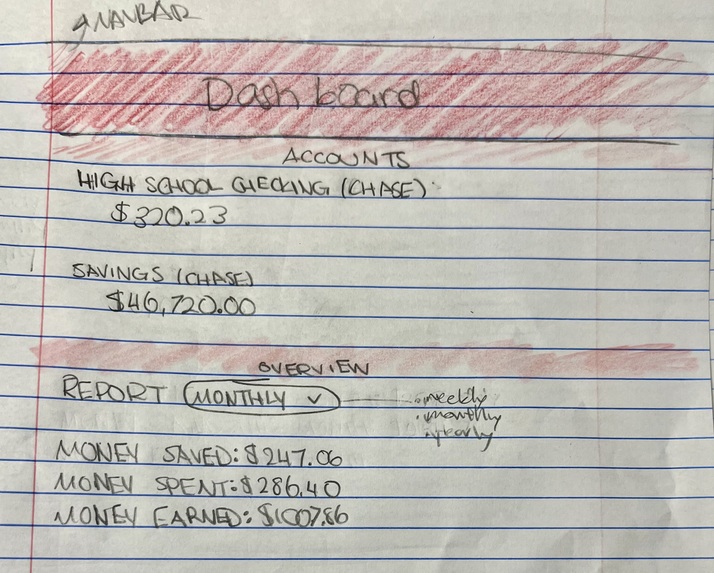 NAVBAR
Dashboard
ACCOUNTS
HIGH SCHOOL CHECKING (CHASE)
$320.23
SAVINGS (CHASE)
$46,720.00
OVERVIEW
REPORT MONTHLY
· weekly
· monthly
· yearly
MONEY SAVED: $247.06
MONEY SPENT: $286.40
MONEY EARNED: $1007.86